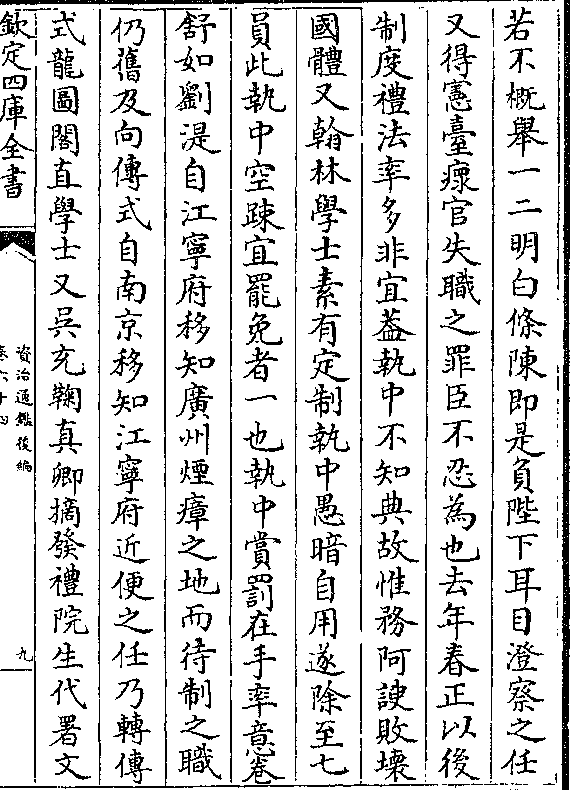 若不概舉一二明白條陳即是負陛下耳目澄察之任
又得憲臺瘝官失職之罪臣不忍為也去年春正以後
制度禮法率多非宜葢執中不知典故惟務阿諛敗壞
國體又翰林學士素有定制執中愚暗自用遂除至七
員此執中空疎宜罷免者一也執中賞罰在手率意卷
舒如劉湜自江寧府移知廣州煙瘴之地而待制之職
仍舊及向傳式自南京移知江寧府近便之任乃轉傳
式龍圖閣直學士又吳充鞠真卿摘發禮院生代署文
欽定四庫全書
資治通鑑後編
卷六十四
九